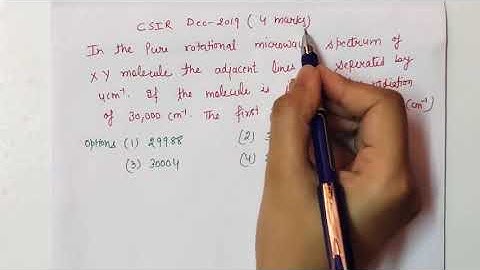 CSIR Dec-2019 ( 4 marks)
In the Pure rotational microwave spectrum of
X Y molecule the adjacent lines seperated by
4cm⁻¹. If the molecule is
of 30,000 cm⁻¹. The first (cm⁻¹)
options (1) 29988 (2)
(3) 30004 (4)